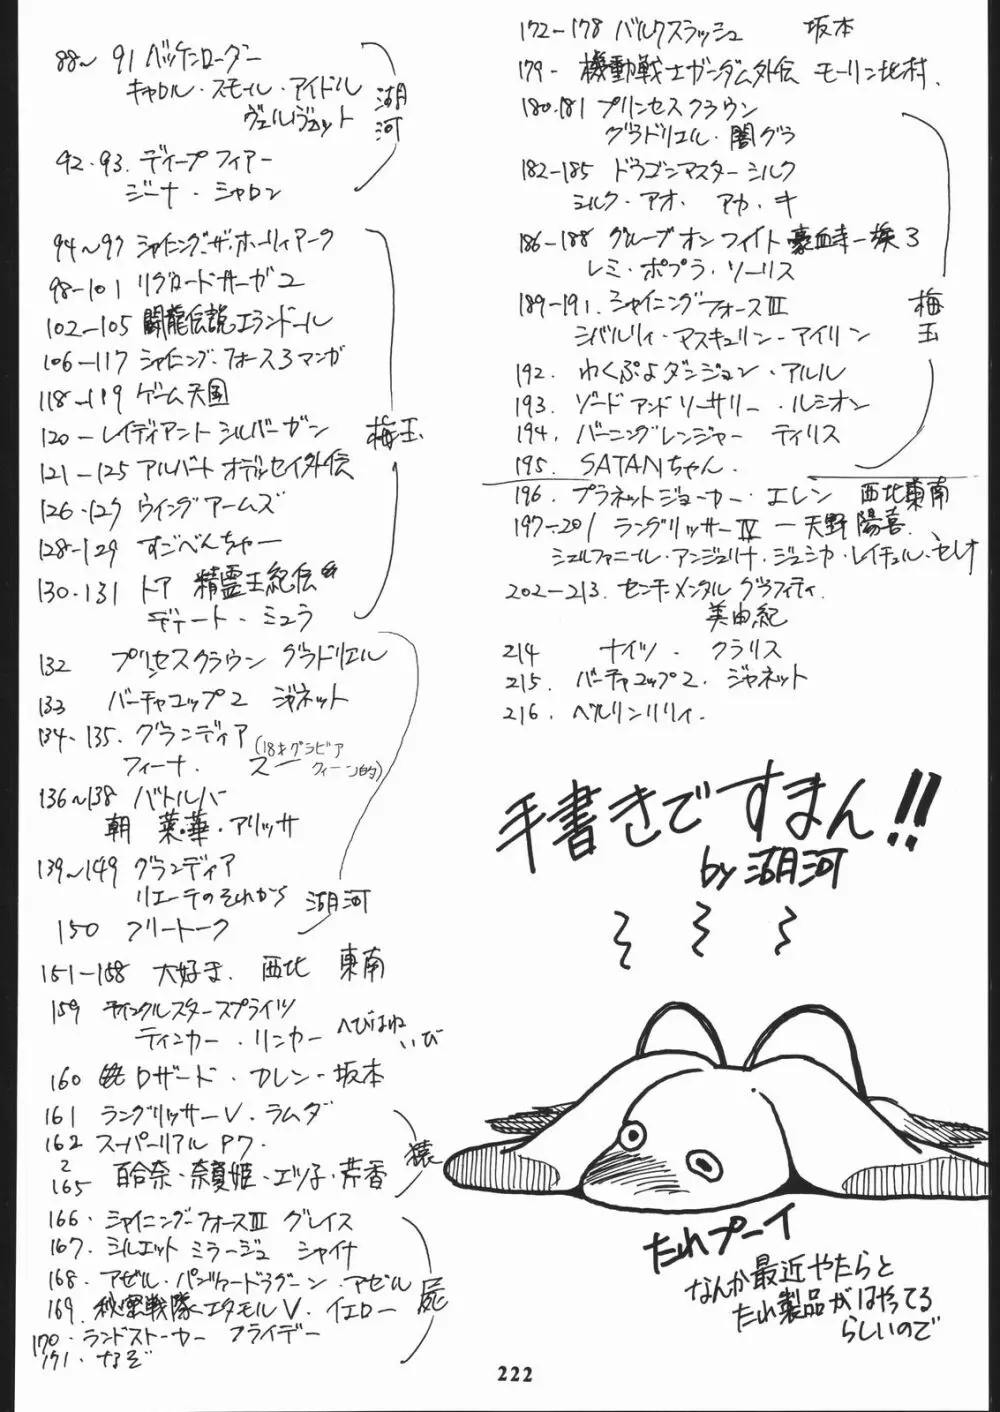 88～91 バッケンローダー
キャロル・スモール・アイドル
ヴェルヴェット
湖河
92・93. ディープフィアー
ジーナ・シャロン
94～97 シャイニング・ザ・ホーリィアーク
98-101 リグロードサーガ2
102-105 闘龍伝説エランドール
106-117 シャイニング・フォース3マンガ
118-119 ゲーム天国
120-レイディアントシルバーガン
梅玉
121-125 アルバートオデッセイ外伝
126・127 ウイングアームズ
128-129 すごべんちゃー
130・131 トア 精霊王紀伝
ディート・ミュラ
132 プリンセスクラウン グラドリエル
133 バーチャコップ2 ジャネット
134・135. グランディア
フィーナ. スー (18才グラビアクィーン的)
136～138 バトルバ
朝 菜・華・アリッサ
139～149 グランディア
リエーテのそれから 湖河
150 フリートーク
151-158 大好き. 西北 東南
159 ティンクルスタースプライツ
ティンカー・リンカー へびはねいび
160 ロザード・カレン-坂本
161 ラングリッサーV・ラムダ
162 スーパーリアルP7.
2
165 百合奈・奈賀姫・エツ子・芹香
猿
166・シャイニング・フォースIII グレイス
167. シルエットミラージュ シャイナ
168・アゼル・パンツァードラグーン・アゼル
屍
169. 秘密戦隊メタモルV・イエロー
170・ランドストーカー フライデー
171・なぞ
172-178 バルクスラッシュ 坂本
179- 機動戦士ガンダム外伝 モーリン北村.
180.181 プリンセスクラウン
グラドリエル・闇グラ
182-185 ドラゴンマスターシルク
シルク・アオ. アカ・キ
186-188 グルーブオンファイト豪血寺一族3
レミ・ポプラ・ソーリス
189-191. シャイニングフォースIII
梅玉
シバルリィ・アスキュリン-アイリン
192. わくぷよダンジョン・アルル
193. ソードアンドソーサリー・ルシオン
194. バーニングレンジャー ティリス
195. SATANちゃん.
196. プラネットジョーカー・エレン 西北東南
197-201 ラングリッサーIV -天野陽喜.
シェルファニール・アンジェリナ・ジェシカ・レイチェル・セレナ
202-213. センチメンタルグラフィティ.
美由紀
214 ナイツ・ クラリス
215. バーチャコップ2. ジャネット
216. ベルリンリリィ.
手書きですまん!!
by 湖河
たれプーイ
なんか最近やたらと
たれ製品がはやってる
らしいので
222